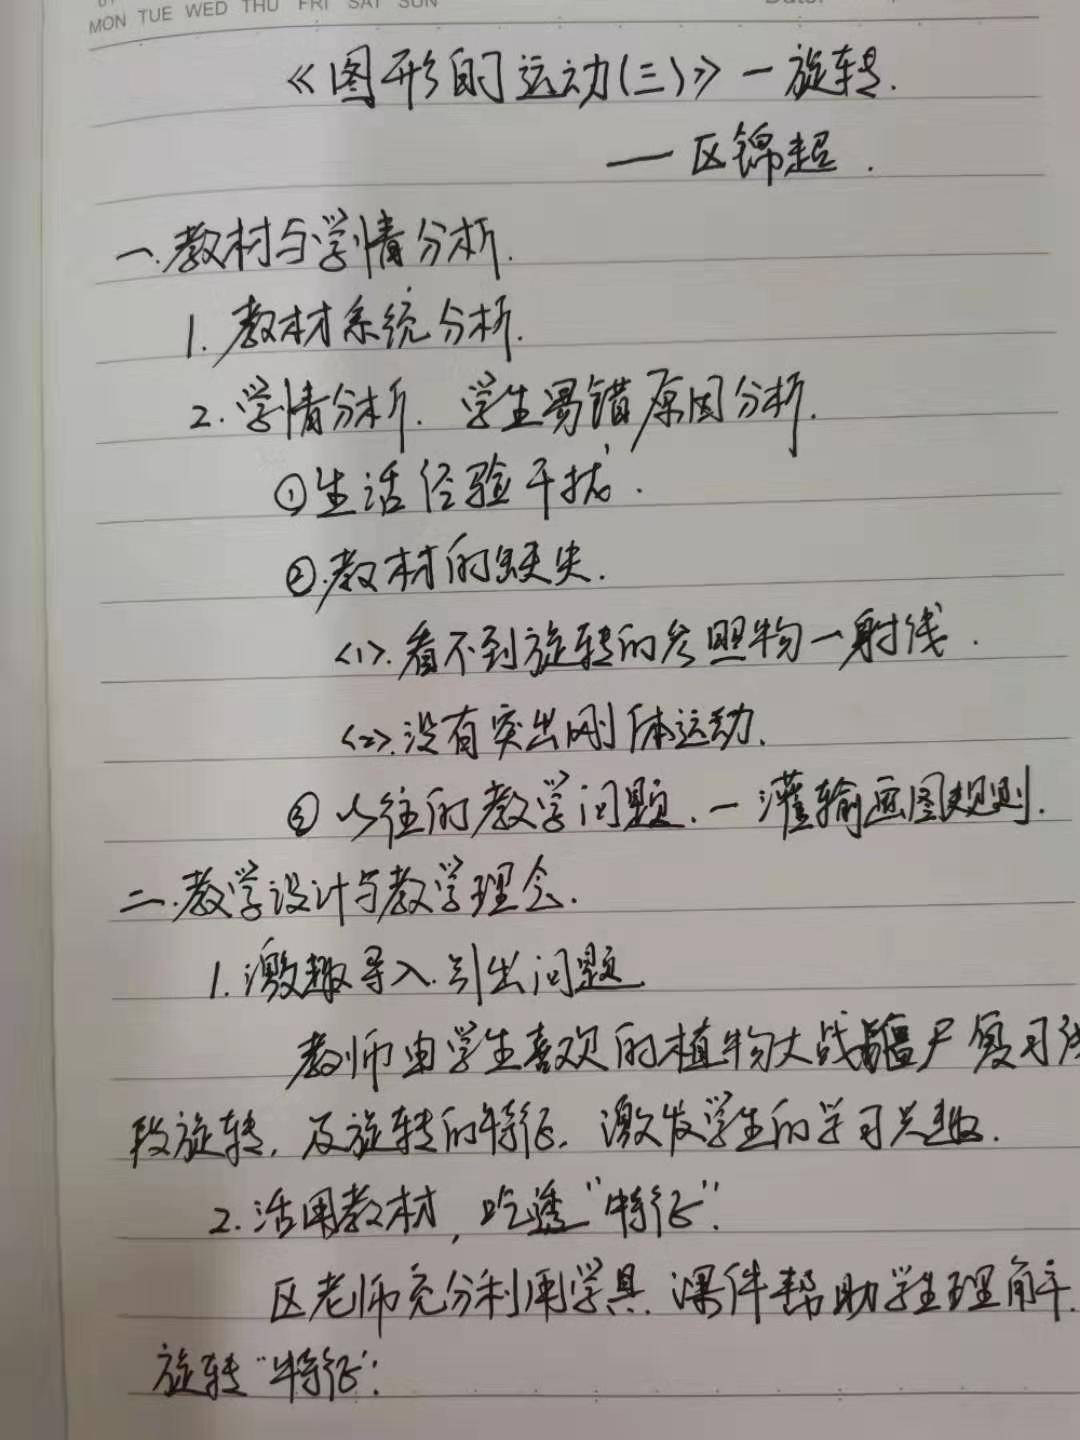 MON TUE WED THU FRI SAT SUN
《图形的运动(三)》—旋转.
——区锦超.
一.教材与学情分析.
1.教材系统分析.
2.学情分析.学生易错原因分析.
①生活经验干扰.
②.教材的缺失.
<1>.看不到旋转的参照物—射线.
<2>.没有突出刚体运动.
③以往的教学问题.—灌输画图规则.
二.教学设计与教学理念.
1.激趣导入.引出问题
教师由学生喜欢的植物大战僵尸复习线
段旋转,及旋转的特征.激发学生的学习兴趣.
2.活用教材,吃透"特征".
区老师充分利用学具.课件帮助学生理解.
旋转"特征".